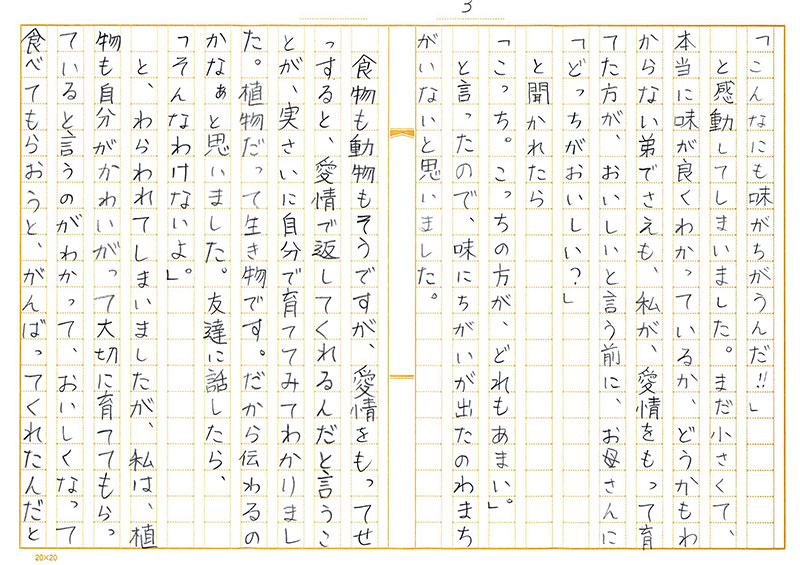 3
「こんなにも味がちがうんだ!!」
と感動してしまいました。まだ小さくて、
本当に味が良くわかっているか、どうかもわ
からない弟でさえも、私が、愛情をもって育
てた方が、おいしいと言う前に、お母さんに
「どっちがおいしい?」
と聞かれたら
「こっち。こっちの方が、どれもあまい」。
と言ったので、味にちがいが出たのわまち
がいないと思いました。
食物も動物もそうですが、愛情をもってせ
っすると、愛情で返してくれるんだと言うこ
とが、実さいに自分で育ててみてわかりまし
た。植物だって生き物です。だから伝わるの
かなぁと思いました。友達に話したら、
「そんなわけないよ」。
と、わらわれてしまいましたが、私は、植
物も自分がかわいがって大切に育ててもらっ
ていると言うのがわかって、おいしくなって
食べてもらおうと、がんばってくれたんだと
20×20